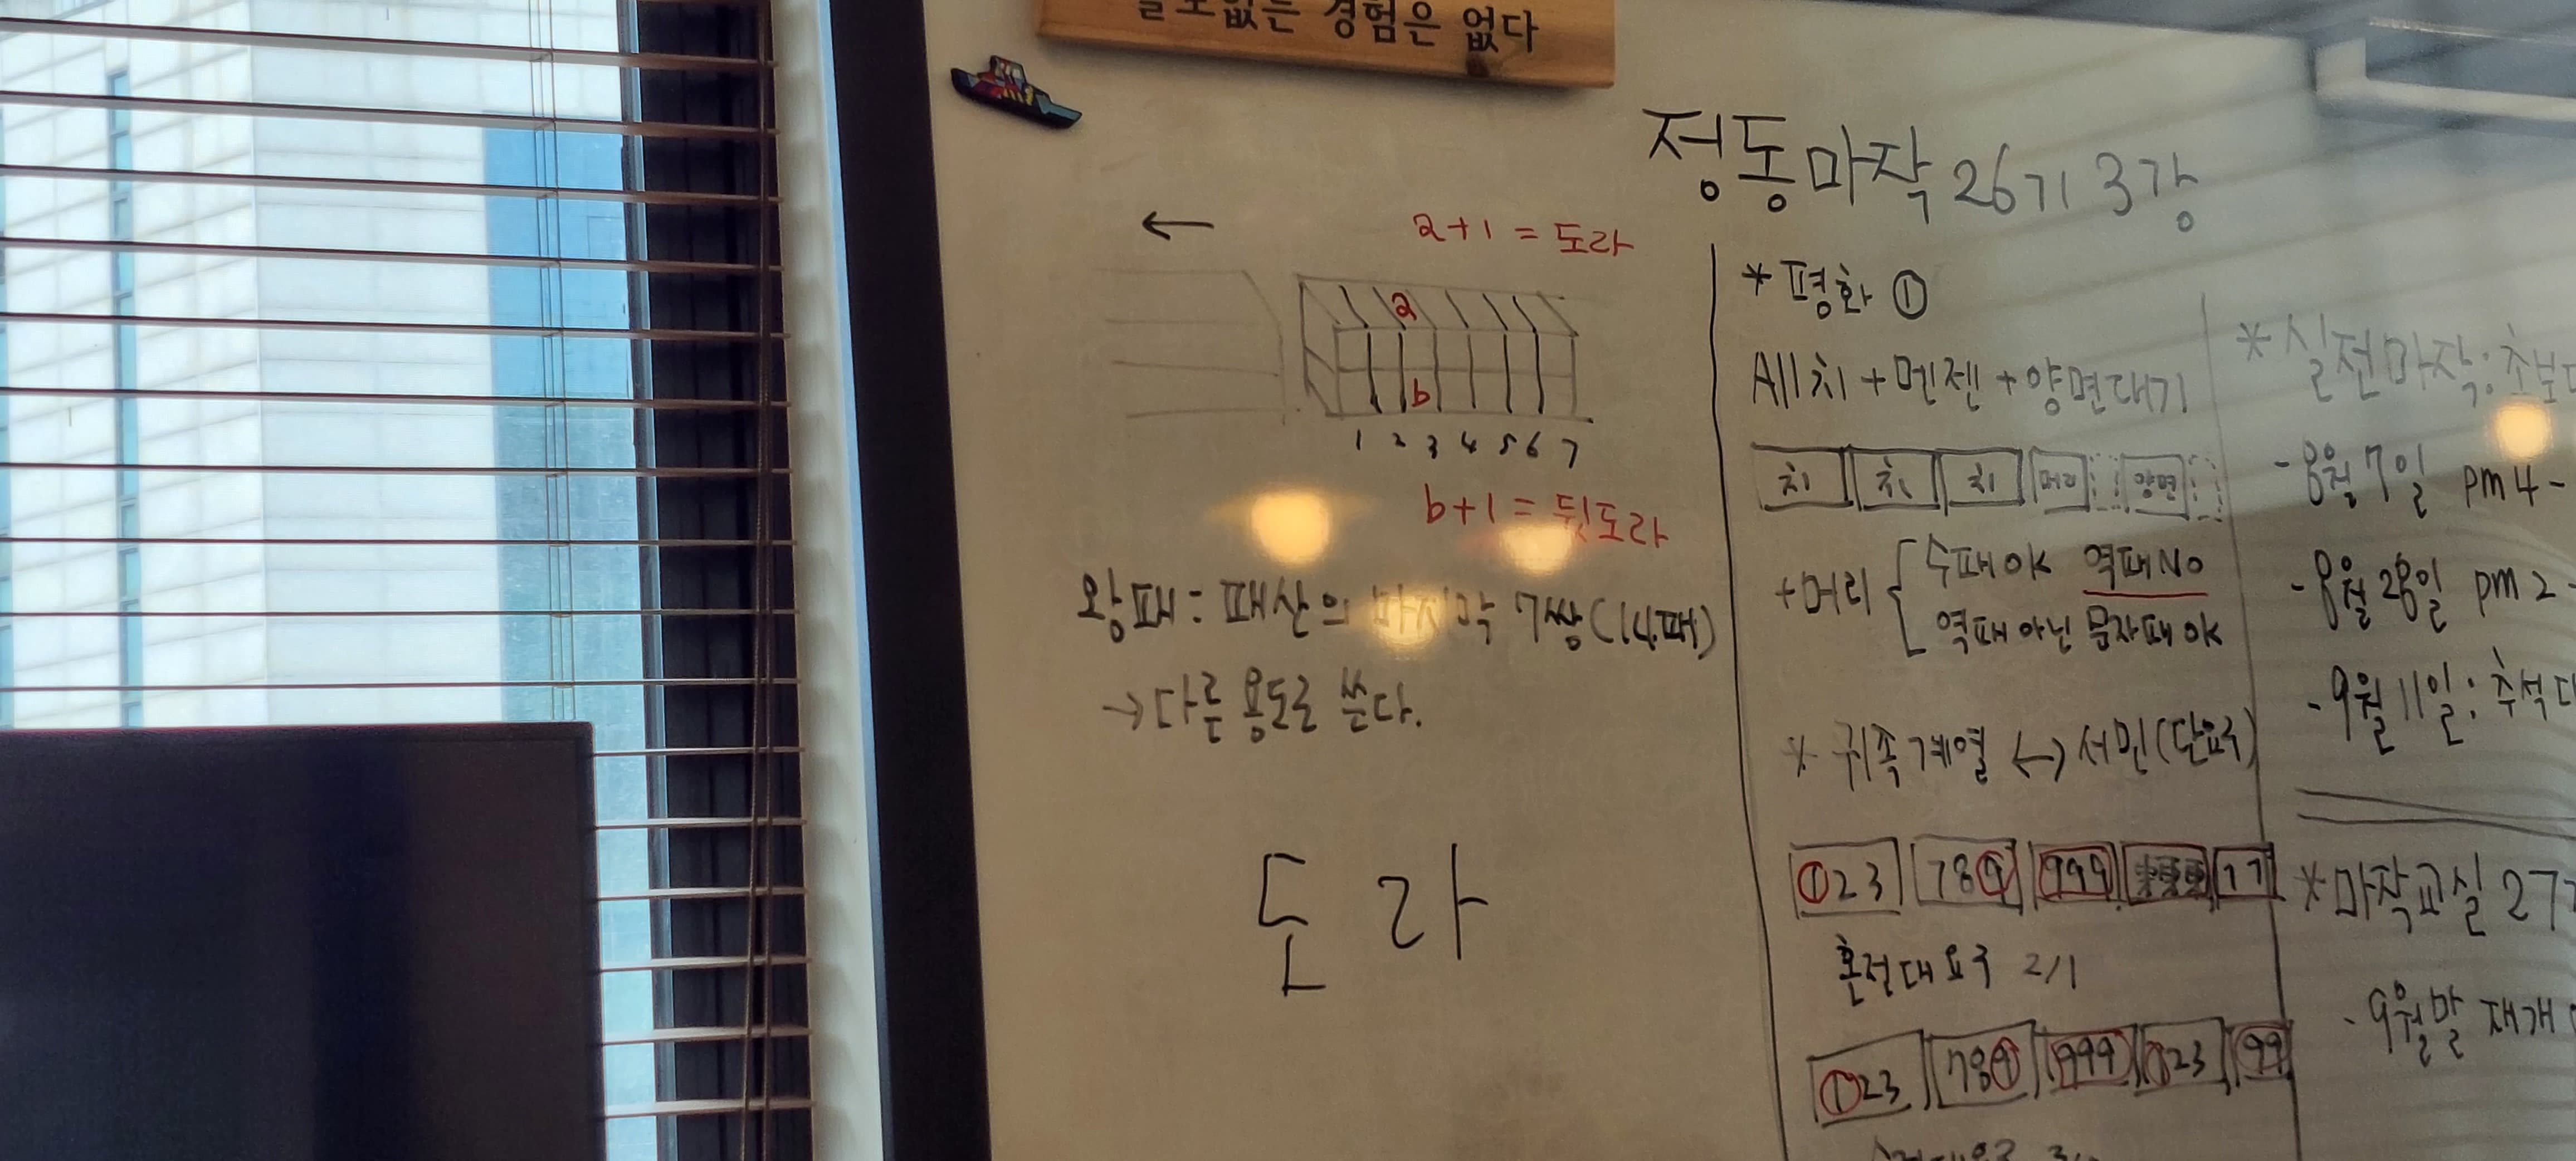 없는 경험은 없다
정동마작 26기 3강
←
a+1 = 도라
a
b
1 2 3 4 5 6 7
b+1 = 뒷도라
왕패: 패산의 마지막 7쌍(14패)
→다른 용도로 쓴다.
도라
*평화 ①
All치+멘젠+양면대기
치 치 치 머리 양면
+머리 수패OK 역패NO
역패아닌 문자패OK
* 귀족계열 ↔ 서민(탕요구)
①23 78⑨ 999 11
혼전대요구 2/1
①23 78⑨ 999 ①23 99
*실전마작: 초보
-8월 7일 pm 4-
-8월 28일 pm 2-
-9월 11일: 추석
*마작교실 27
-9월말 재개